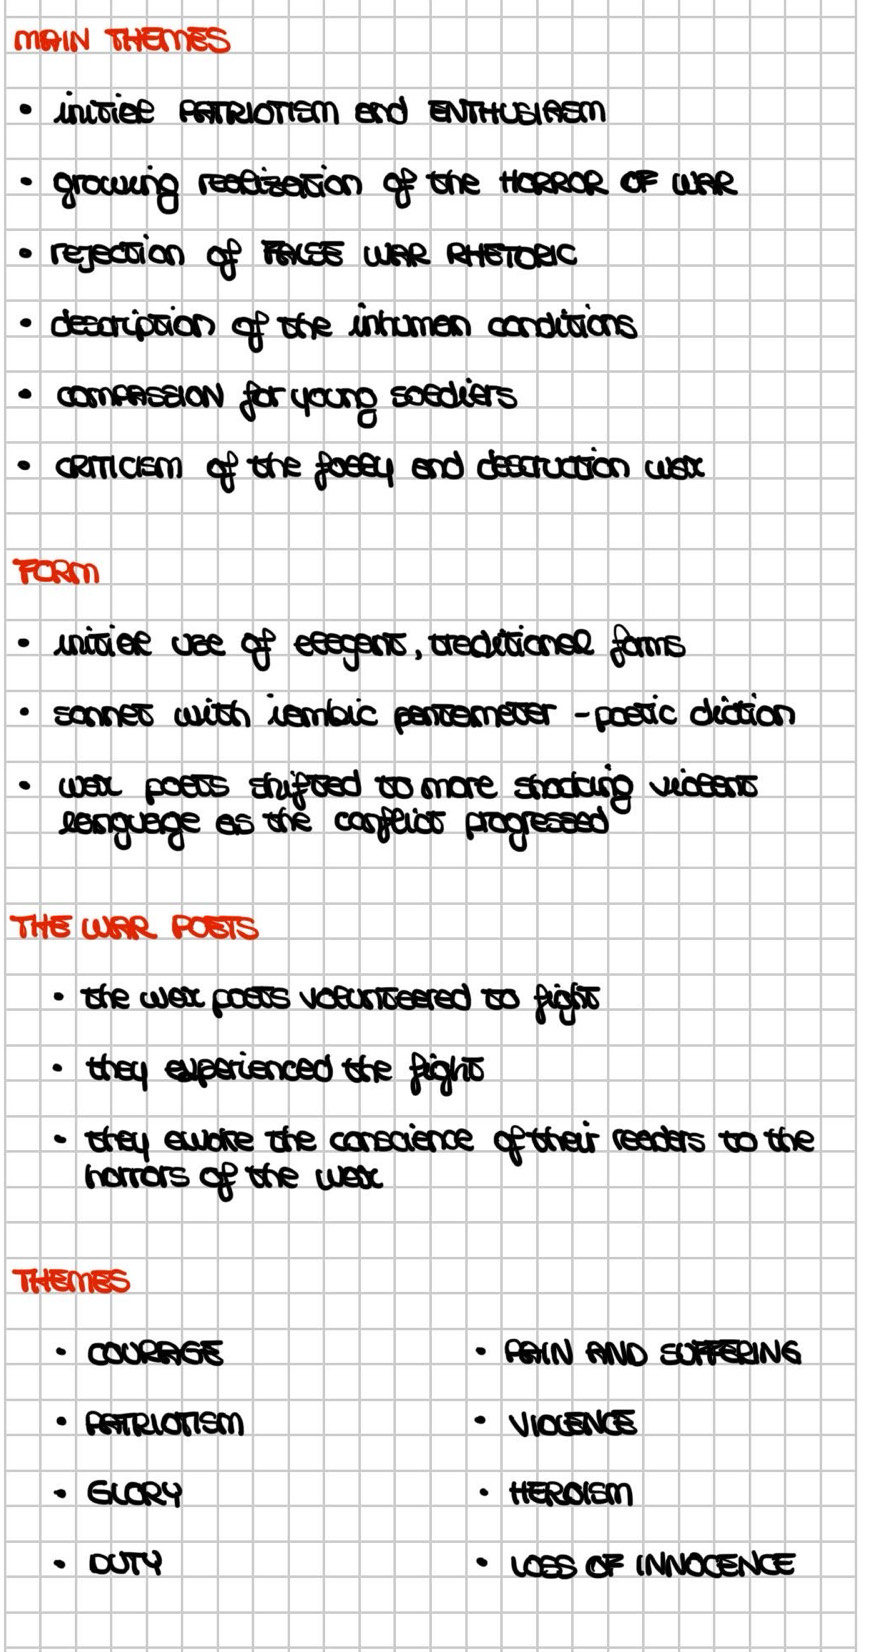 MAIN THEMES
• initial PATRIOTISM and ENTHUSIASM
• growing realisation of the HORROR OF WAR
• rejection of FALSE WAR RHETORIC
• description of the inhuman conditions
• COMPASSION for young soldiers
• CRITICISM of the folly and destruction war
FORM
• initial use of elegant, traditional forms
• sonnet with iambic pentameter - poetic diction
• war poets shifted to more shocking violent
language as the conflict progressed
THE WAR POETS
• the war poets volunteered to fight
• they experienced the fight
• they awoke the conscience of their readers to the
horrors of the war
THEMES
• COURAGE
• PATRIOTISM
• GLORY
• DUTY
• PAIN AND SUFFERING
• VIOLENCE
• HEROISM
• LOSS OF INNOCENCE